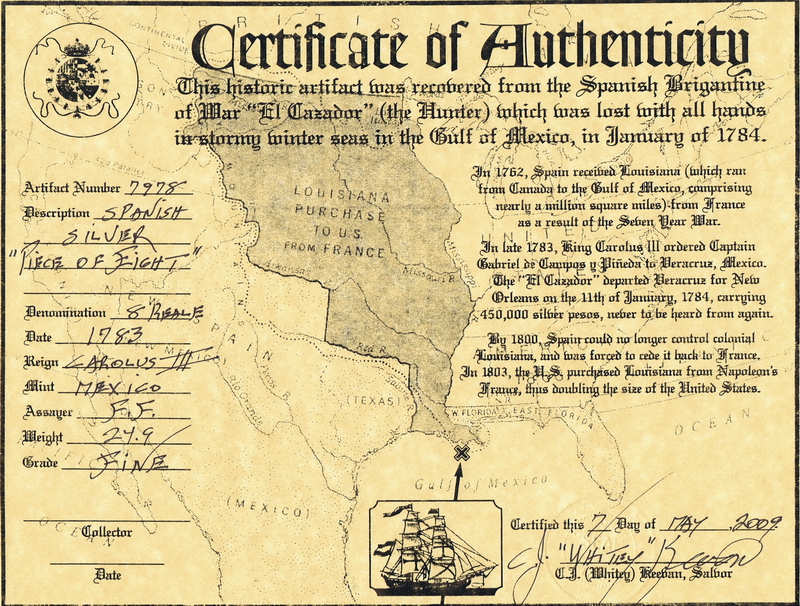 Certificate of Authenticity
This historic artifact was recovered from the Spanish Brigantine
of War "El Cazador" (the Hunter) which was lost with all hands
in stormy winter seas in the Gulf of Mexico, in January of 1784.
Artifact Number 7978
Description SPANISH
SILVER
"PIECE OF EIGHT"
Denomination 8 REALE
Date 1783
Reign CAROLUS III
Mint MEXICO
Assayer F.F.
Weight 24.9
Grade FINE
Collector
Date
In 1762, Spain received Louisiana (which ran
from Canada to the Gulf of Mexico, comprising
nearly a million square miles) from France
as a result of the Seven Year War.
In late 1783, King Carolus III ordered Captain
Gabriel de Campos y Piñeda to Veracruz, Mexico.
The "El Cazador" departed Veracruz for New
Orleans on the 11th of January, 1784, carrying
450,000 silver pesos, never to be heard from again.
By 1800, Spain could no longer control colonial
Louisiana, and was forced to cede it back to France.
In 1803, the U.S. purchased Louisiana from Napoleon's
France, thus doubling the size of the United States.
CONTINENTAL
DIVIDE
BRITISH
LOUISIANA
PURCHASE
TO U.S.
FROM FRANCE
Mississippi
Missouri R.
Arkansas
Red R.
SPAIN
Rio Grande
Pecos R.
(TEXAS)
(MEXICO)
W. FLORIDA
EAST FLORIDA
OCEAN
Gulf of Mexico
OCEAN
Certified this 7 Day of MAY, 2009.
C.J. "WHITEY" Keevan
C.J. (Whitey) Keevan, Salvor